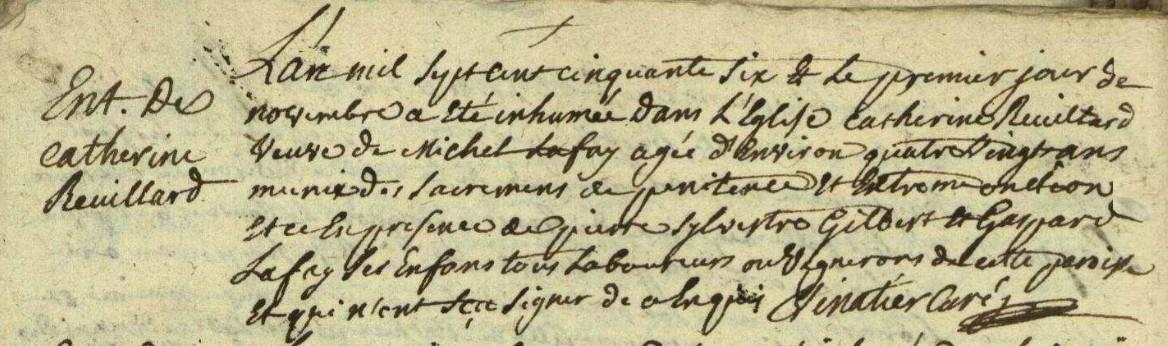 Ent. De
catherine
Reuillard
L'an mil sept cent cinquante six et le premier jour de
novembre a eté inhumée dans L'Eglise catherine Reuillard
veuve de Michel Lafay agée d'environ quatre vingts ans
munie des sacremens de penitence et extreme onction
et ce en presence de pierre sylvestre Gilbert et Gaspard
Lafay ses Enfans tous Laboureurs ou vignerons de cette paroisse
et qui n'ont sçu signer de ce enquis Vinatier Curé